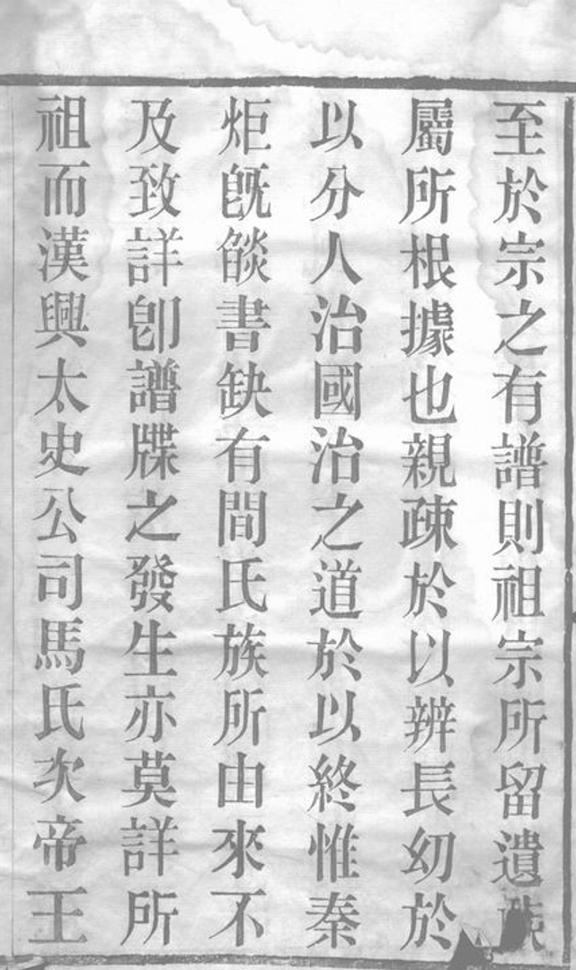 至於宗之有譜則祖宗所留遺
屬所根據也親疎於以辨長㓜於
以分人治國治之道於以終惟秦
炬旣燄書缺有間氏族所由來不
及致詳卽譜牒之發生亦莫詳所
祖而漢興太史公司馬氏次帝王